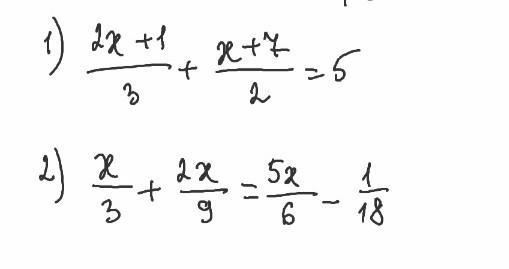 1) (2x+1)/3 + (x+7)/2 = 5
2) x/3 + 2x/9 = 5x/6 - 1/18